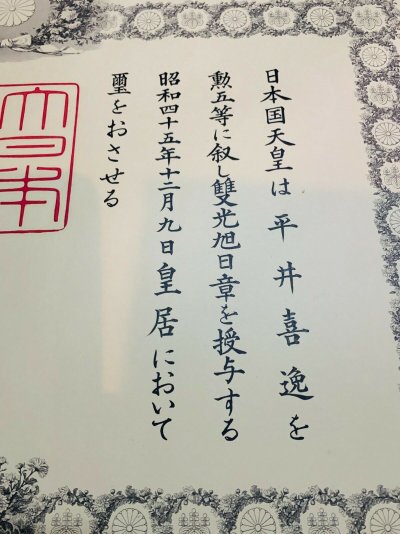 日本国天皇は平井喜逸を
勲五等に叙し雙光旭日章を授与する
昭和四十五年十二月九日皇居において
璽をおさせる
大日本